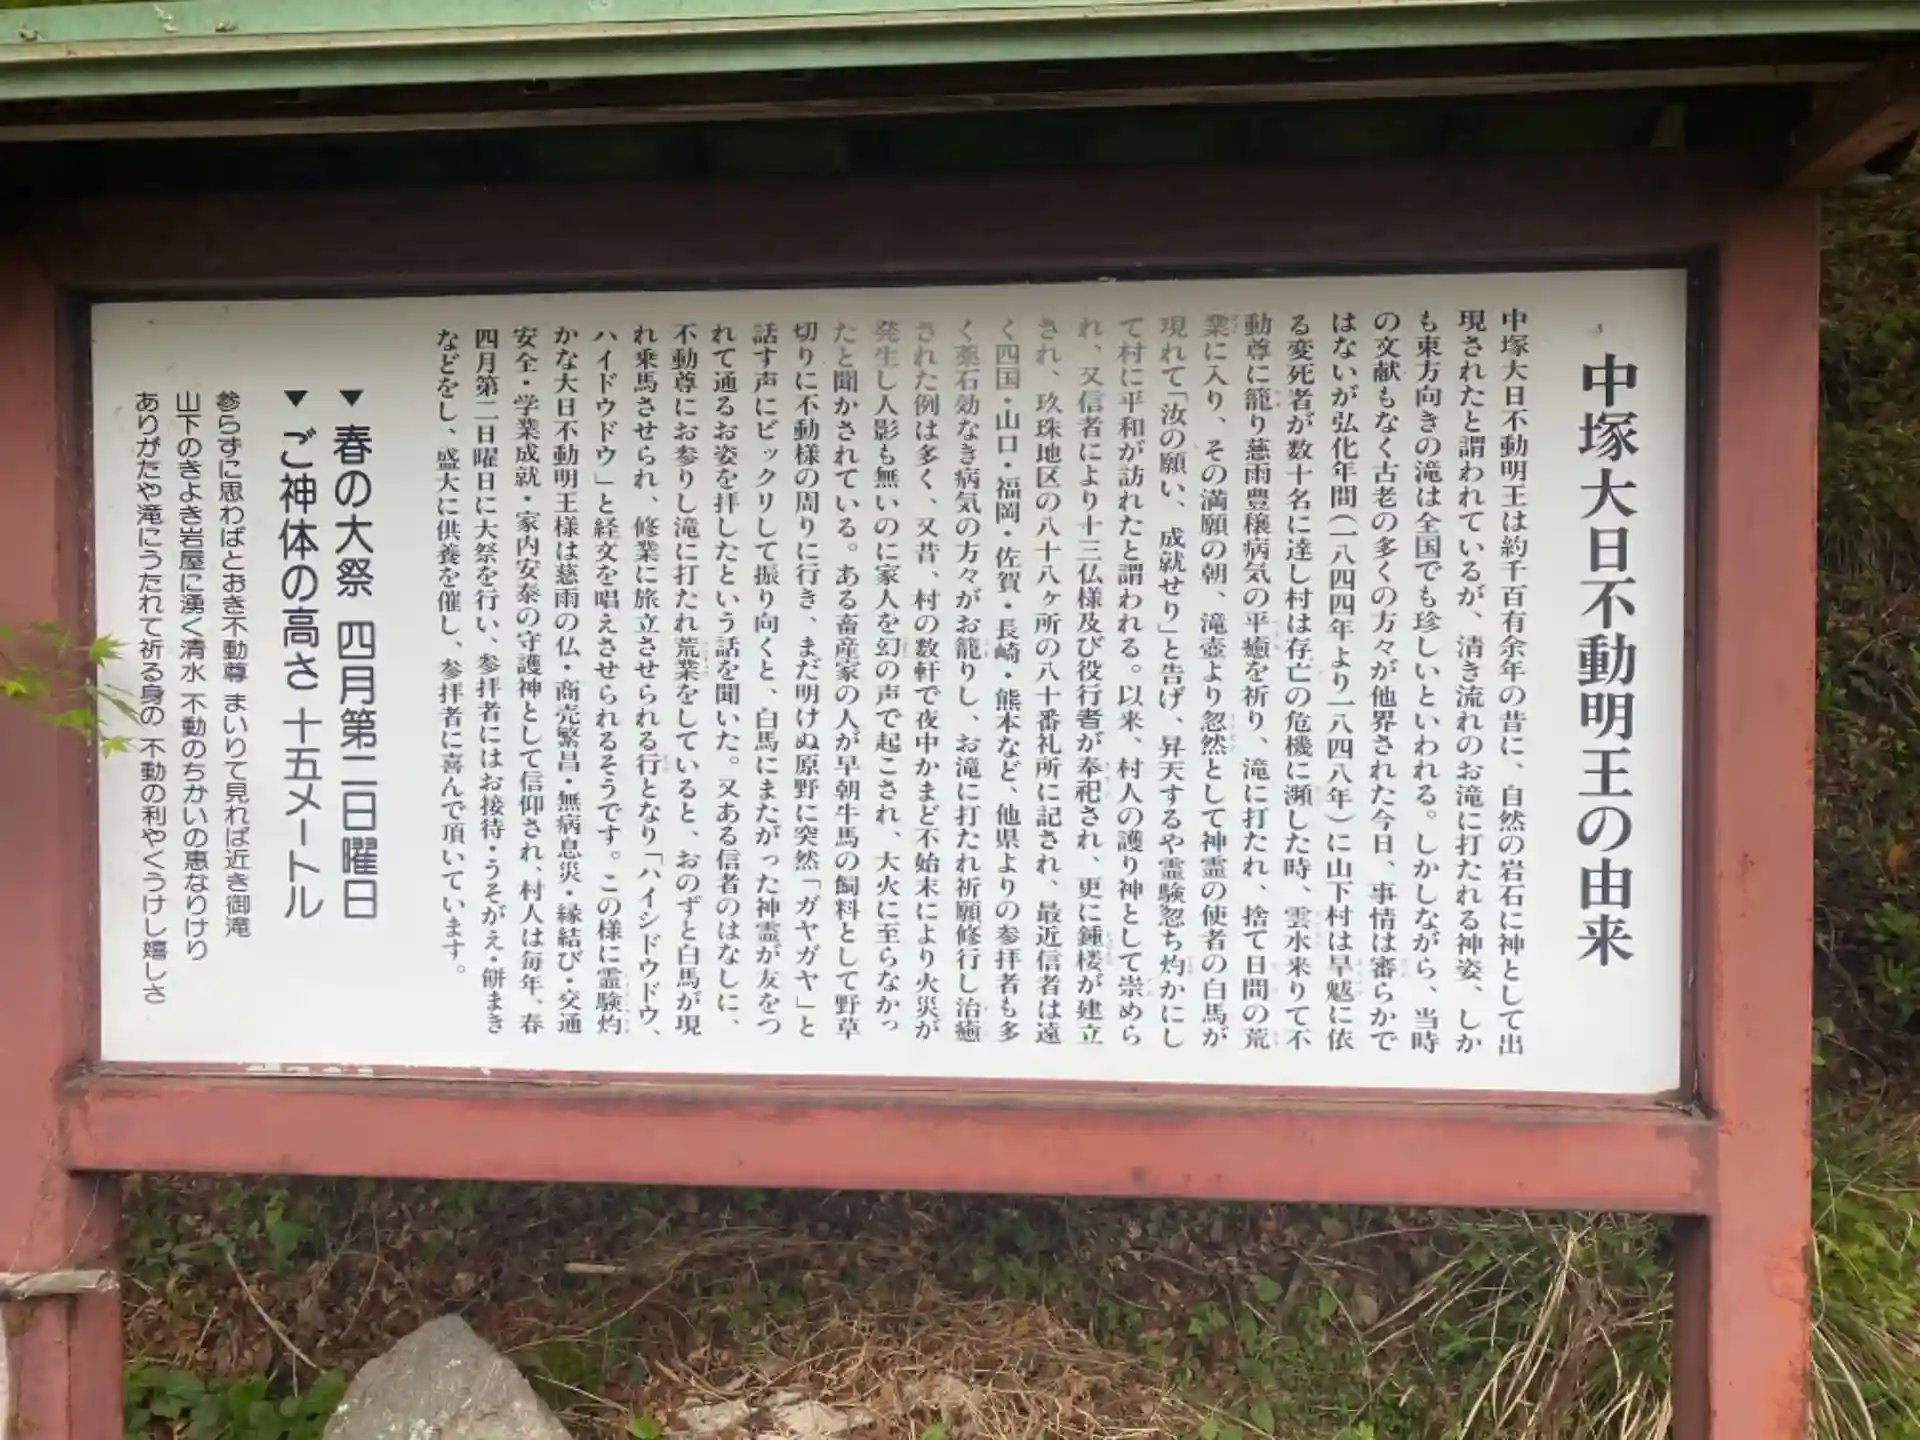 中塚大日不動明王の由来
中塚大日不動明王は約千百有余年の昔に、自然の岩石に神として出
現されたと謂われているが、清き流れのお滝に打たれる神姿、しか
も東方向きの滝は全国でも珍しいといわれる。しかしながら、当時
の文献もなく古老の多くの方々が他界された今日、事情は審らかで
はないが弘化年間(一八四四年より一八四八年)に山下村は旱魃に依
る変死者が数十名に達し村は存亡の危機に瀕した時、雲水来りて不
動尊に籠り慈雨豊穣病気の平癒を祈り、滝に打たれ、捨て日間の荒
業に入り、その満願の朝、滝壺より忽然として神霊の使者の白馬が
現れて「汝の願い、成就せり」と告げ、昇天するや霊験忽ち灼かにし
て村に平和が訪れたと謂われる。以来、村人の護り神として崇めら
れ、又信者により十三仏様及び役行者が奉祀され、更に鍾楼が建立
され、玖珠地区の八十八ヶ所の八十番礼所に記され、最近信者は遠
く四国・山口・福岡・佐賀・長崎・熊本など、他県よりの参拝者も多
く薬石効なき病気の方々がお籠りし、お滝に打たれ祈願修行し治癒
された例は多く、又昔、村の数軒で夜中かまど不始末により火災が
発生し人影も無いのに家人を幻の声で起こされ、大火に至らなかっ
たと聞かされている。ある畜産家の人が早朝牛馬の飼料として野草
切りに不動様の周りに行き、まだ明けぬ原野に突然「ガヤガヤ」と
話す声にビックリして振り向くと、白馬にまたがった神霊が友をつ
れて通るお姿を拝したという話を聞いた。又ある信者のはなしに、
不動尊にお参りし滝に打たれ荒業をしていると、おのずと白馬が現
れ乗馬させられ、修業に旅立させられる行となり「ハイシドウドウ、
ハイドウドウ」と経文を唱えさせられるそうです。この様に霊験灼
かな大日不動明王様は慈雨の仏・商売繁昌・無病息災・縁結び・交通
安全・学業成就・家内安泰の守護神として信仰され、村人は毎年、春
四月第二日曜日に大祭を行い、参拝者にはお接待・うそがえ・餅まき
などをし、盛大に供養を催し、参拝者に喜んで頂いています。
▼春の大祭 四月第二日曜日
▼ご神体の高さ 十五メートル
参らずに思わばとおき不動尊 まいりて見れば近き御滝
山下のきよき岩屋に湧く清水 不動のちかいの恵なりけり
ありがたや滝にうたれて祈る身の 不動の利やくうけし嬉しさ